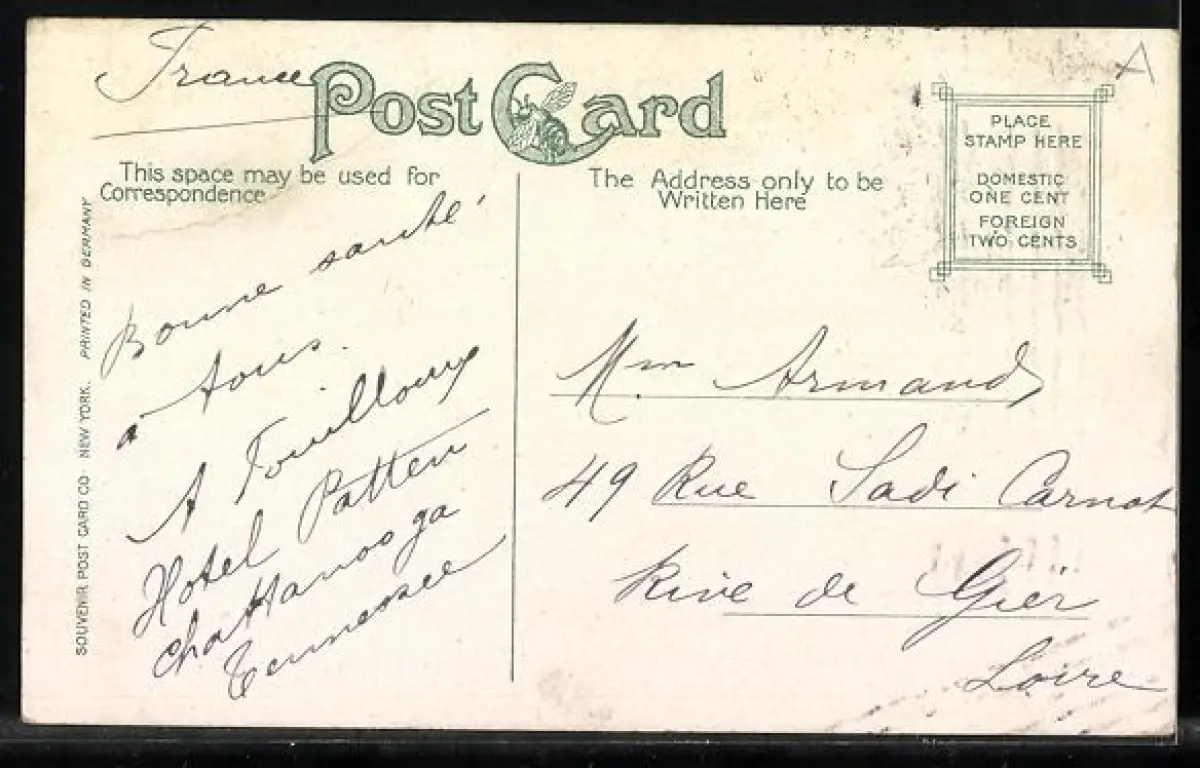 France
Post Card
This space may be used for
Correspondence
The Address only to be
Written Here
PLACE
STAMP HERE
DOMESTIC
ONE CENT
FOREIGN
TWO CENTS
A
SOUVENIR POST CARD CO. NEW YORK. PRINTED IN GERMANY
Bonne santé
a tous.
A Touilloux
Hotel Patten
Chattanooga
Tennessee
Mm Armand
49 Rue Sadi Carnot
Rive de Gier
Loire